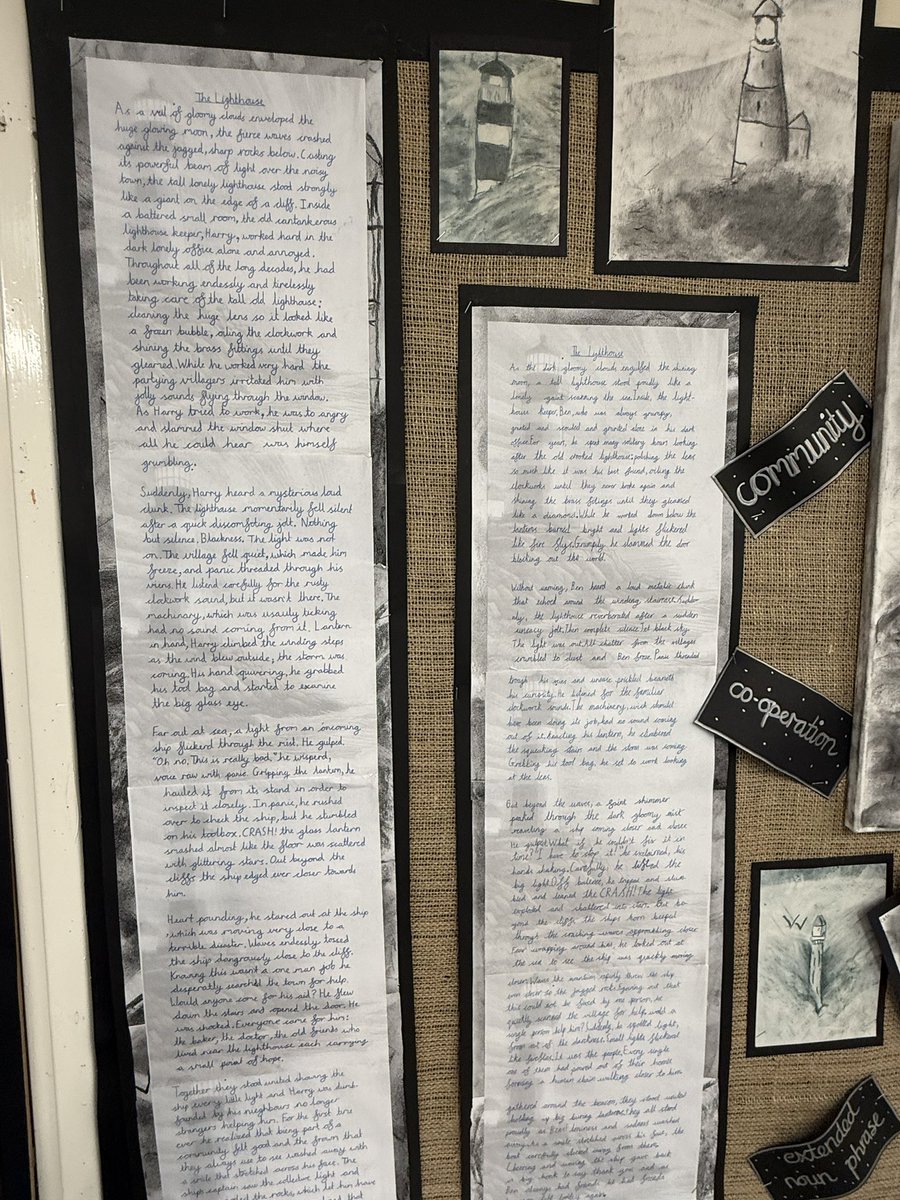 The Lighthouse
As a veil of gloomy clouds enveloped the
huge glowing moon, the fierce waves crashed
against the jagged, sharp rocks below. Casting
its powerful beam of light over the noisy
town, the tall lonely lighthouse stood strongly
like a giant on the edge of a cliff. Inside
a battered small room, the old cantankerous
lighthouse keeper, Harry, worked hard in the
dark lonely office alone and annoyed.
Throughout all of the long decades, he had
been working endlessly and tirelessly
taking care of the tall old lighthouse;
cleaning the huge lens so it looked like
a frozen bubble, oiling the clockwork and
shining the brass fittings until they
gleamed. While he worked very hard the
partying villagers irritated him with
jolly sounds flying through the window.
As Harry tried to work, he was to angry
and slammed the window shut where
all he could hear was himself
grumbling.
Suddenly, Harry heard a mysterious loud
clunk. The lighthouse momentarily fell silent
after a quick discomfoting jolt. Nothing
but silence. Blackness. The light was not
on. The village fell quiet, which made him
freeze, and panic threaded through his
viens. He listend carefully for the rusty
clockwork sound, but it wasn't there. The
machinary, which was usauly ticking
had no sound coming from it. Lantern
in hand, Harry climbed the winding steps
as the wind blew outside, the storm was
coming. His hand quivering, he grabbed
his tool bag and started to examine
the big glass eye.
Far out at sea, a light from an oncoming
ship flickerd through the mist. He gulped.
"Oh no. This is really bad." he wisperd,
voice raw with panic. Gripping the lantern, he
hauled it from its stand in order to
inspect it closely. In panic, he rushed
over to check the ship, but he stumbled
on his toolbox. CRASH! the glass lantern
smashed almost like the floor was scattered
with glittering stars. Out beyond the
cliffs the ship edged ever closer towards
him.
Heart pounding, he stared out at the ship
, which was moving very close to a
terrible disaster. Waves endlessly tossed
the ship dangrously close to the cliff.
Knowing this wasn't a one man job he
desperatly searched the town for help.
Would anyone come for his aid? He flew
down the stairs and opened the door. He
was shocked. Everyone came for him:
the baker, the doctor, the old friends who
lived near the lighthouse each carrying
a small point of hope.
Together they stood united sharing the
ship every little light and Harry was dumb-
founded by his neighbours no longer
strangers helping him. For the first time
ever he realized that being part of a
community felt good and the frown that
they always use to see washed away with
a smile that stretched across his face. The
ships captain saw the collective light and
the rocks, which let him have
The Lighthouse
As the dark gloomy clouds engulfed the shining
moon, a tall lighthouse stood proudly like a
lonely giant scanning the sea. Inside, the light-
house keeper, Ben, who was always grumpy,
and and grunted alone in his dark
office. For years, he spent many solitary hours looking
after the old crooked lighthouse: polishing the lens
so much like it was his best friend, oiling the
clockwork until they never broke again and
shining the brass fittings until they gleamed
like a diamond. While he worked down below the
lanterns burned bright and lights flickered
like fire flys. Grumply, he slammed the door
blocking out the world.
Without warning, Ben heard a loud metalic clunk
that echoed around the winding staircase. Sudden-
ly, the lighthouse reverborated after a sudden
uneasy jolt. Then complete silence. Jet black sky.
The light was out. All chatter from the villages
crumbled to dust and Ben froze. Panic threaded
trough his viens and unease prickled beneath
his curiosity. He listened for the familier
clockwork sounds. The machinery, wich should
have been doing its job, had no sound coming
out of it. his lantern, he clambered
the squeaking stairs and the storm was coming.
Grabbing his tool bag, he set to work looking
at the lens.
But beyond the waves, a faint shimmer
through the dark gloomy mist
revealing a ship coming closer and closer.
He gulped. What if he couldn't fix it in
time? "I have to stop it" he exclaimed, his
hands shaking. Carefully, he lifted the
big light. Off balence, he triped and
and the CRASH! The light
exploded and shattered into stars. But be-
yond the cliffs the ships horn
through the crashing waves approaching closer.
Fear wrapping around him, he looked out at
the sea to see the ship was quickly moving
closer. Waves the rapidly threw the ship
ever closer to the jagged rocks. Figuring out that
this could not be fixed by one person, he
quickly scanned the village for help. Would a
single person help him? Suddenly, he spotted light,
from out of the darkness. Small lights flickered
like fireflies. It was the people. Every single
one of them had poured out of their homes
forming a human chain walking closer to him.
gathered around the beacon, they stood united
holding up big lanterns, they all stood
proudly as Bens loniness and sadness washed
away, while a smile stretched across his face, the
boat carefully steered away from them.
Cheering and waving the ship gave back
a big honk to say thank you and as
Ben always had friends he had friends
community
co-operation
extended
noun phrase